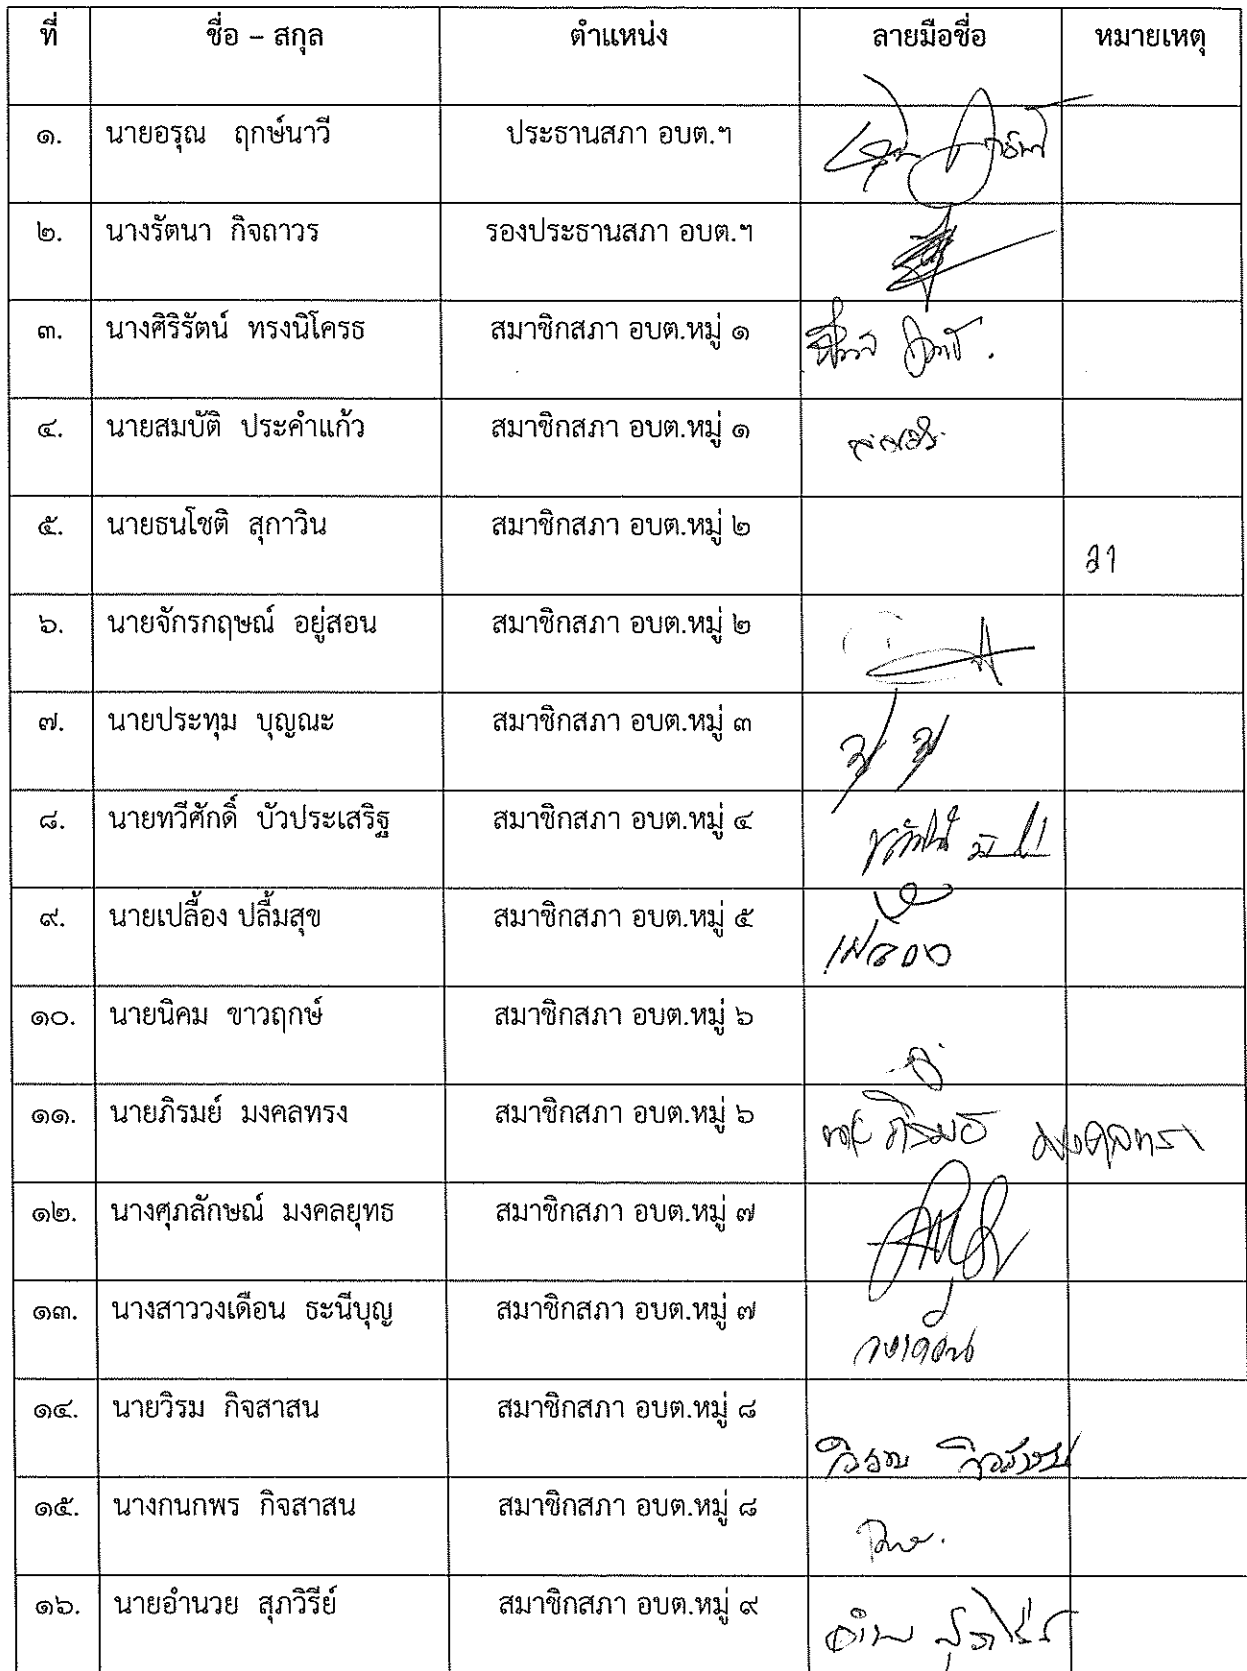 ที่ ชื่อ – สกุล ตำแหน่ง ลายมือชื่อ หมายเหตุ
๑. นายอรุณ ฤกษ์นาวี ประธานสภา อบต.ฯ
๒. นางรัตนา กิจถาวร รองประธานสภา อบต.ฯ
๓. นางศิริรัตน์ ทรงนิโครธ สมาชิกสภา อบต.หมู่ ๑
๔. นายสมบัติ ประคำแก้ว สมาชิกสภา อบต.หมู่ ๑
๕. นายธนโชติ สุกาวิน สมาชิกสภา อบต.หมู่ ๒ ลา
๖. นายจักรกฤษณ์ อยู่สอน สมาชิกสภา อบต.หมู่ ๒
๗. นายประทุม บุญณะ สมาชิกสภา อบต.หมู่ ๓
๘. นายทวีศักดิ์ บัวประเสริฐ สมาชิกสภา อบต.หมู่ ๔
๙. นายเปลื้อง ปลื้มสุข สมาชิกสภา อบต.หมู่ ๕ เปลื้อง
๑๐. นายนิคม ขาวฤกษ์ สมาชิกสภา อบต.หมู่ ๖
๑๑. นายภิรมย์ มงคลทรง สมาชิกสภา อบต.หมู่ ๖ นาย ภิรมย์ มงคลทรง
๑๒. นางศุภลักษณ์ มงคลยุทธ สมาชิกสภา อบต.หมู่ ๗
๑๓. นางสาววงเดือน ธะนีบุญ สมาชิกสภา อบต.หมู่ ๗ วงเดือน
๑๔. นายวิรม กิจสาสน สมาชิกสภา อบต.หมู่ ๘ วิรม กิจสาสน
๑๕. นางกนกพร กิจสาสน สมาชิกสภา อบต.หมู่ ๘
๑๖. นายอำนวย สุภวิรีย์ สมาชิกสภา อบต.หมู่ ๙